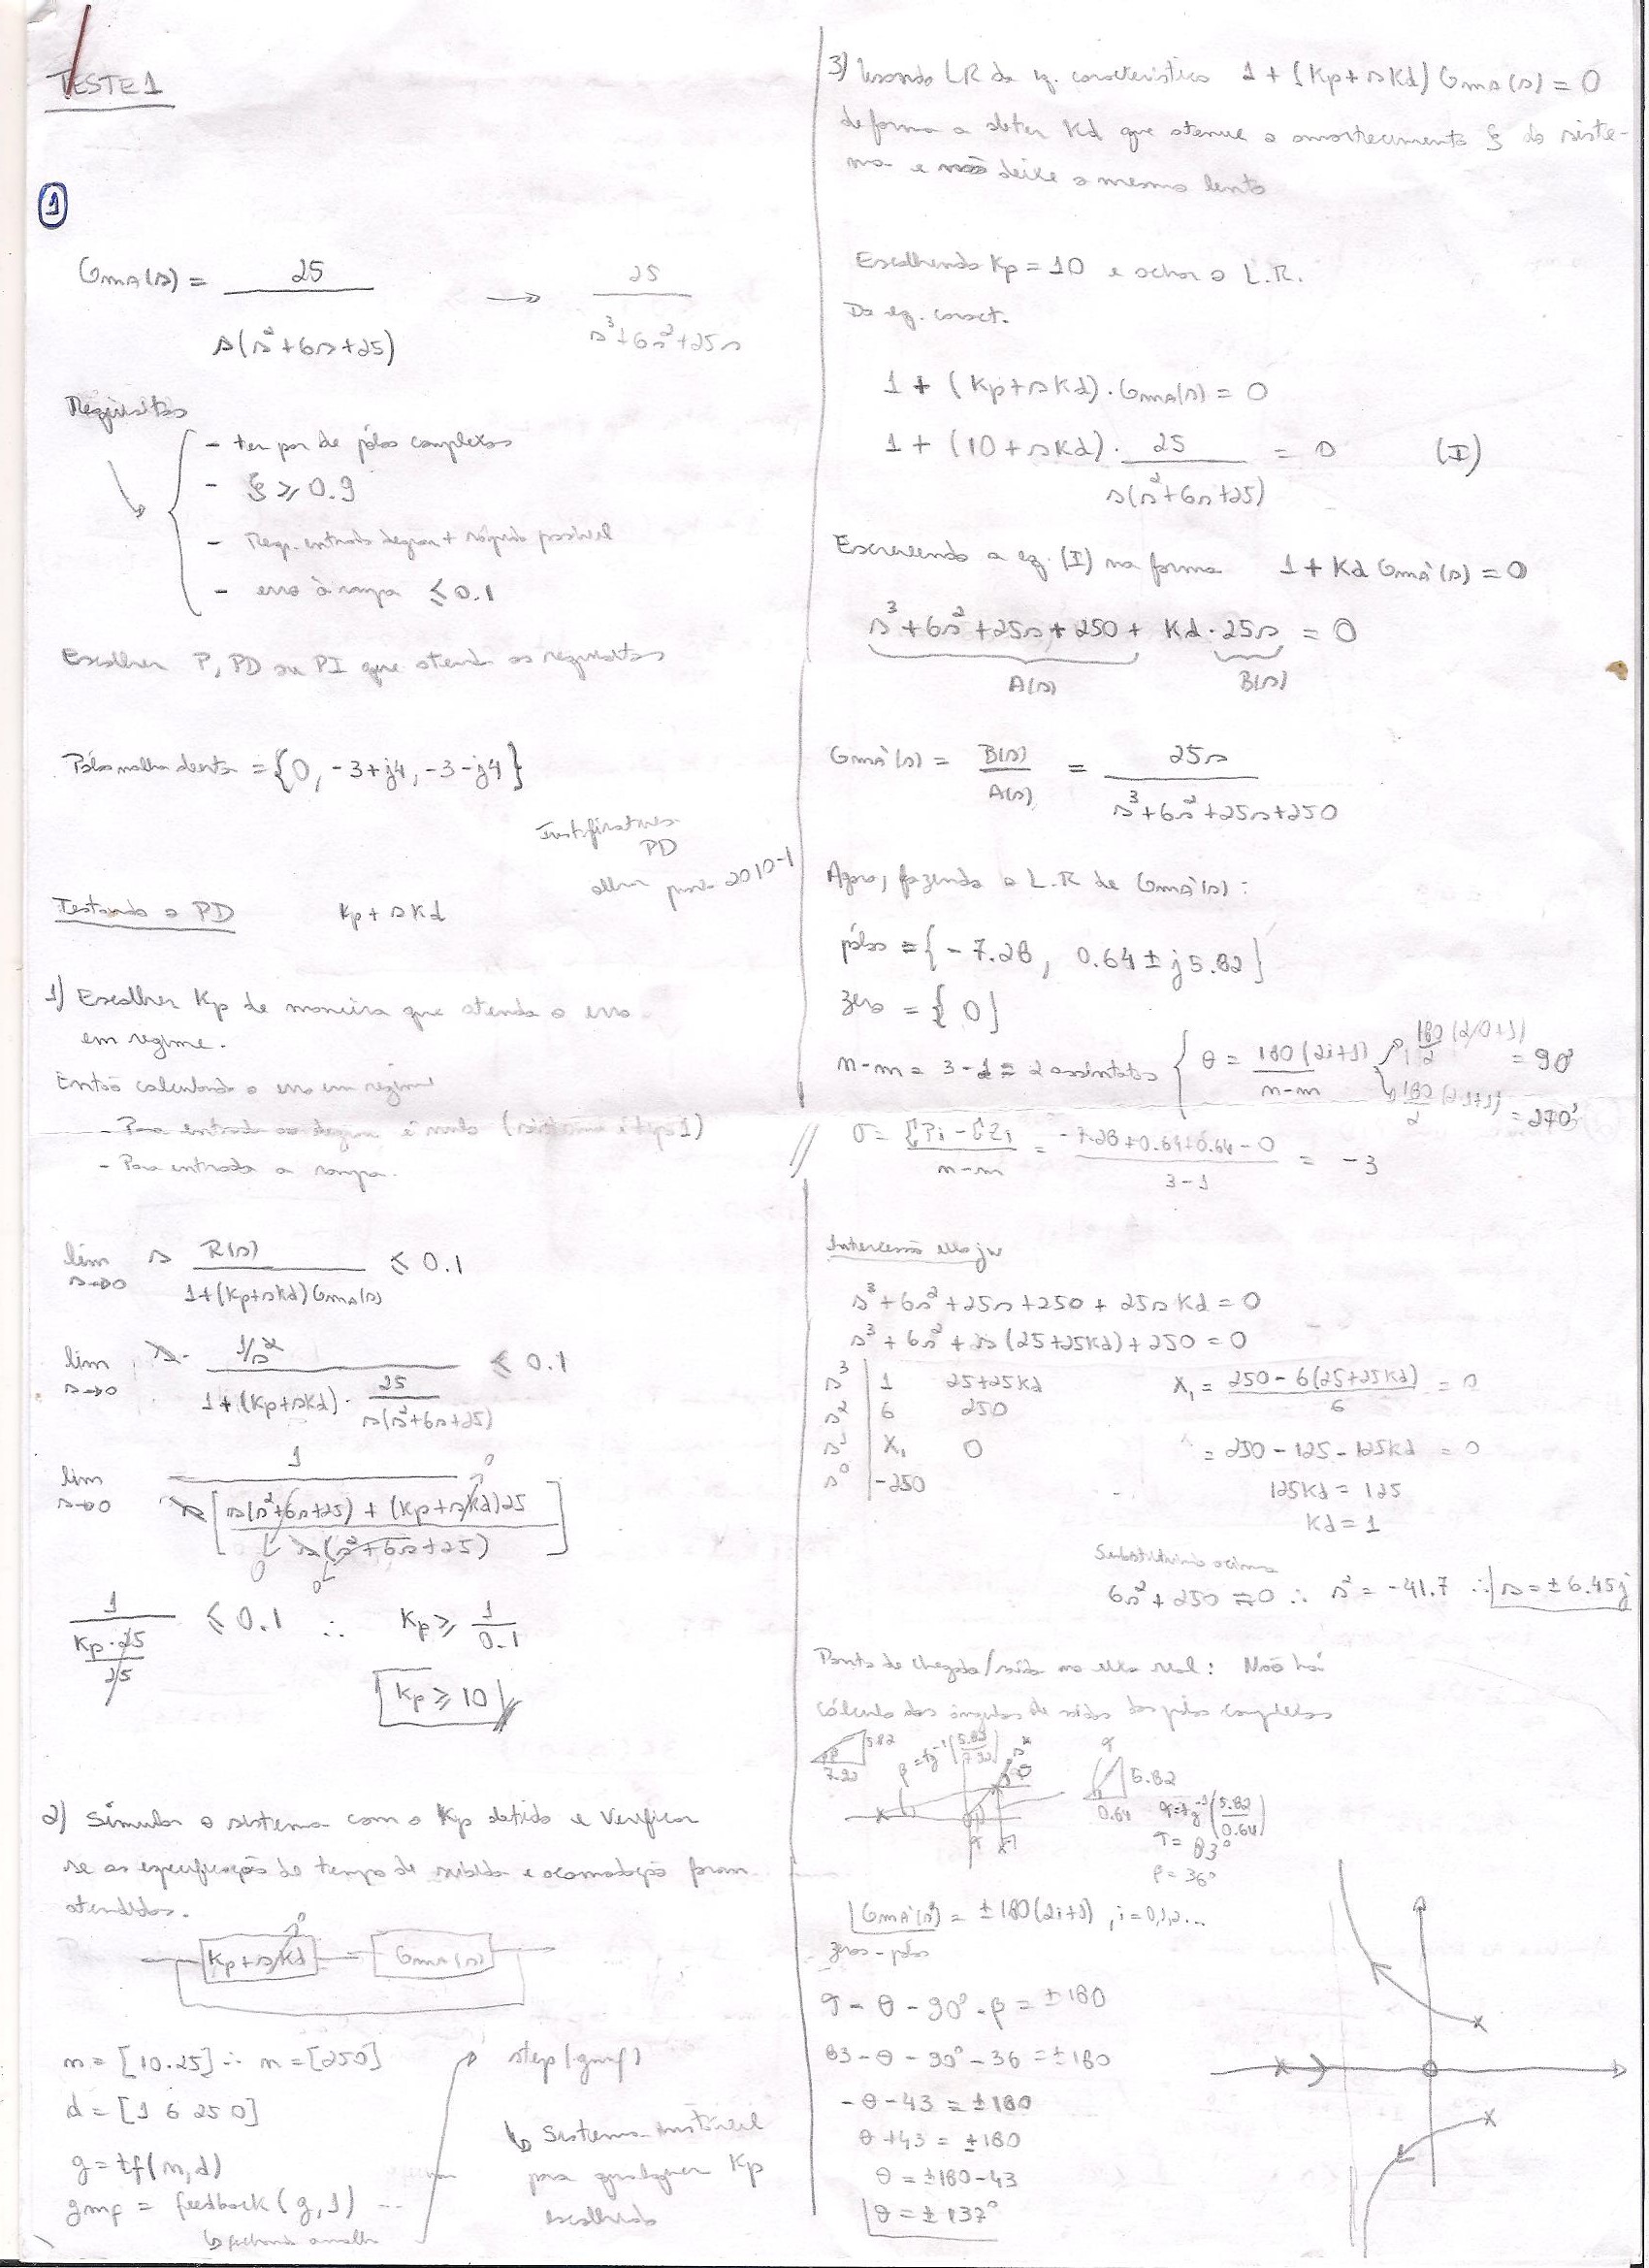 TESTE 1
1
GMA(s) = 25 / s(s²+6s+25) → 25 / s³+6s²+25s
Requisitos
- ter par de pólos complexos
- ξ ≥ 0.9
- Resp. entrada degrau + rápida possível
- erro à rampa ≤ 0.1
Escolher P, PD ou PI que atenda os requisitos
Pólos malha aberta = {0, -3+j4, -3-j4}
Justificativa
PD
olhar prova 2010-1
Testando o PD Kp + sKd
1) Escolher Kp de maneira que atenda o erro
em regime.
Então calculando o erro em regime
- Para entrada ao degrau é nulo (sistema é tipo 1)
- Para entrada a rampa.
lim s→0 s R(s) / 1+(Kp+sKd)GMA(s) ≤ 0.1
lim s→0 s · 1/s² / 1+(Kp+sKd)· 25 / s(s²+6s+25) ≤ 0.1
lim s→0 1 / s[ s(s²+6s+25) + (Kp+sKd)25 / s(s²+6s+25) ]
0
0
0
1 / Kp·25/25 ≤ 0.1 ∴ Kp ≥ 1/0.1
Kp ≥ 10
2) Simular o sistema com o Kp obtido e verificar
se as especificação de tempo de subida e acomodação foram
atendidos.
Kp+sKd 0 GMA(s)
n = [10.25] ∴ n = [250]
d = [1 6 25 0]
g = tf(n,d)
gmf = feedback(g,1) ...
↳ fechando a malha
step(gmf)
↳ Sistema instável
para qualquer Kp
escolhido
3) Usando LR da eq. característica 1 + (Kp+sKd) GMA(s) = 0
de forma a obter Kd que atenue o amortecimento ξ do siste-
ma e não deixe o mesmo lento
Escolhendo Kp = 10 e achar o L.R.
Da eq. caract.
1 + (Kp+sKd)·GMA(s) = 0
1 + (10+sKd)· 25 / s(s²+6s+25) = 0 (I)
Escrevendo a eq. (I) na forma 1 + Kd GMA'(s) = 0
s³+6s²+25s+250 + Kd·25s = 0
A(s) B(s)
GMA'(s) = B(s)/A(s) = 25s / s³+6s²+25s+250
Agora, fazendo o L.R de GMA'(s):
pólos = {-7.28, 0.64 ± j5.82}
zero = {0}
n-m = 3-1 = 2 assíntotas { θ = 180(2i+1) / n-m
180/2 (2·0+1) = 90°
180/2 (2·1+1) = 270°
σ = ΣPi - ΣZi / n-m = -7.28+0.64+0.64-0 / 3-1 = -3
Intercessão eixo jw
s³+6s²+25s+250+25sKd = 0
s³+6s²+s(25+25Kd)+250 = 0
s³ 1 25+25Kd
s² 6 250
s¹ X₁ 0
s⁰ -250
X₁ = 250-6(25+25Kd) / 6 = 0
= 250-125-125Kd = 0
125Kd = 125
Kd = 1
Substituindo acima
6s²+250 = 0 ∴ s² = -41.7 ∴ s = ±6.45j
Ponto de chegada/saída no eixo real: Não há
cálculo dos ângulos de saída dos pólos complexos
5.82
β = tg⁻¹(5.82/7.92)
5.82
0.64
φ = tg⁻¹(5.82/0.64)
φ = 83°
β = 36°
GMA'(s*) = ±180(2i+1), i = 0,1,2...
zeros - pólos
φ - θ - 90° - β = ±180
83 - θ - 90° - 36 = ±180
-θ - 43 = ±180
θ + 43 = ±180
θ = ±180 - 43
θ = ±137°